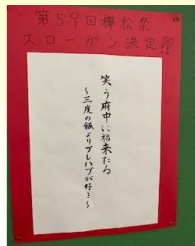 第59回欅松祭
スローガン決定!!
笑う府中に福来たる
〜三度の飯よりプレハブが好き〜